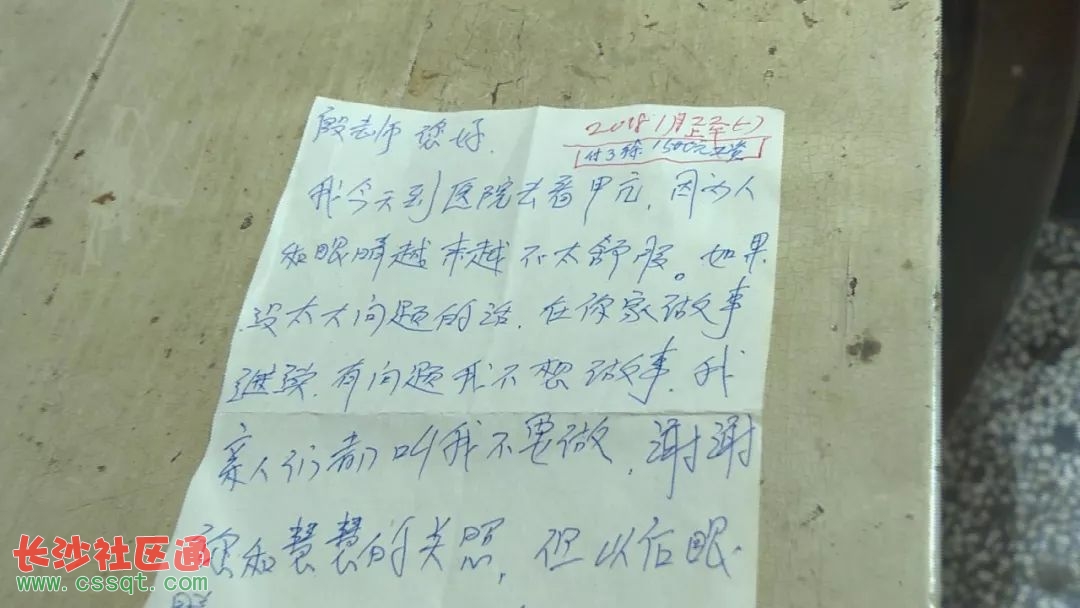 殷老师 您好.
2018 1月22(一)
上午
付3徐1500元工资
我今天到医院去看甲亢,因为人
和眼睛越来越不太舒服。如果
没太大问题的话.在你家做事
继续.有问题我不想做事.我
亲人们都叫我不要做,谢谢
您和慧慧的关照,但以后眼
睛
长沙社区通
www.cssqt.com